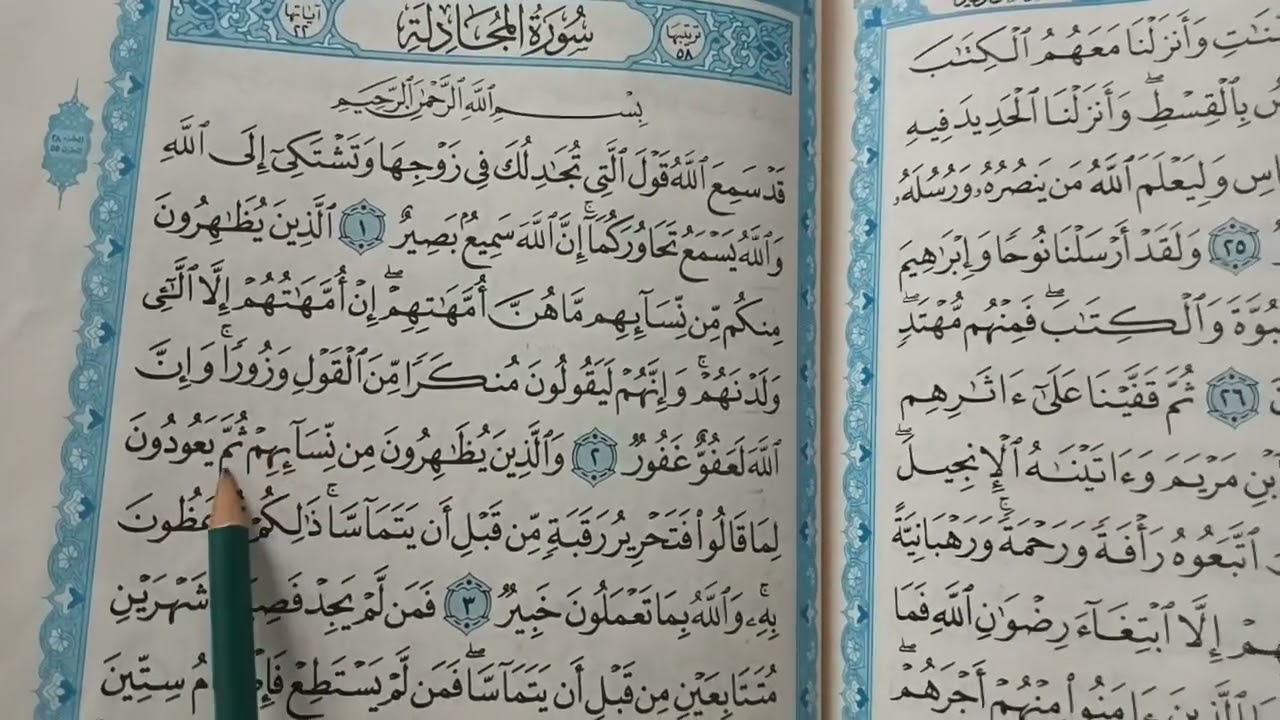 ترتيبها ٥٨
سُورَةُ المُجَادلَةِ
آياتها ٢٢
بِسْمِ ٱللَّهِ ٱلرَّحْمَٰنِ ٱلرَّحِيمِ
قَدْ سَمِعَ ٱللَّهُ قَوْلَ ٱلَّتِي تُجَٰدِلُكَ فِي زَوْجِهَا وَتَشْتَكِيٓ إِلَى ٱللَّهِ
وَٱللَّهُ يَسْمَعُ تَحَاوُرَكُمَآۚ إِنَّ ٱللَّهَ سَمِيعُۢ بَصِيرٌ ١ ٱلَّذِينَ يُظَٰهِرُونَ
مِنكُم مِّن نِّسَآئِهِم مَّا هُنَّ أُمَّهَٰتِهِمْۖ إِنْ أُمَّهَٰتُهُمْ إِلَّا ٱلَّٰٓـِٔي
وَلَدْنَهُمْۚ وَإِنَّهُمْ لَيَقُولُونَ مُنكَرًا مِّنَ ٱلْقَوْلِ وَزُورًاۚ وَإِنَّ
ٱللَّهَ لَعَفُوٌّ غَفُورٌ ٢ وَٱلَّذِينَ يُظَٰهِرُونَ مِن نِّسَآئِهِمْ ثُمَّ يَعُودُونَ
لِمَا قَالُوا۟ فَتَحْرِيرُ رَقَبَةٍ مِّن قَبْلِ أَن يَتَمَآسَّاۚ ذَٰلِكُمْ
بِهِۦۚ وَٱللَّهُ بِمَا تَعْمَلُونَ خَبِيرٌ ٣ فَمَن لَّمْ يَجِدْ شَهْرَيْنِ
مُتَتَابِعَيْنِ مِن قَبْلِ أَن يَتَمَآسَّاۖ فَمَن لَّمْ يَسْتَطِعْ سِتِّينَ
وَأَنزَلْنَا مَعَهُمُ ٱلْكِتَٰبَ
بِٱلْقِسْطِۖ وَأَنزَلْنَا ٱلْحَدِيدَ فِيهِ
وَلِيَعْلَمَ ٱللَّهُ مَن يَنصُرُهُۥ وَرُسُلَهُۥ
٢٥ وَلَقَدْ أَرْسَلْنَا نُوحًا وَإِبْرَٰهِيمَ
وَٱلْكِتَٰبَۖ فَمِنْهُم مُّهْتَدٍۖ
٢٦ ثُمَّ قَفَّيْنَا عَلَىٰٓ ءَاثَٰرِهِم
مَرْيَمَ وَءَاتَيْنَٰهُ ٱلْإِنجِيلَۖ
ٱتَّبَعُوهُ رَأْفَةً وَرَحْمَةًۚ وَرَهْبَانِيَّةً
إِلَّا ٱبْتِغَآءَ رِضْوَٰنِ ٱللَّهِ فَمَا
ٱلَّذِينَ ءَامَنُوا۟ مِنْهُمْ أَجْرَهُمْۖ